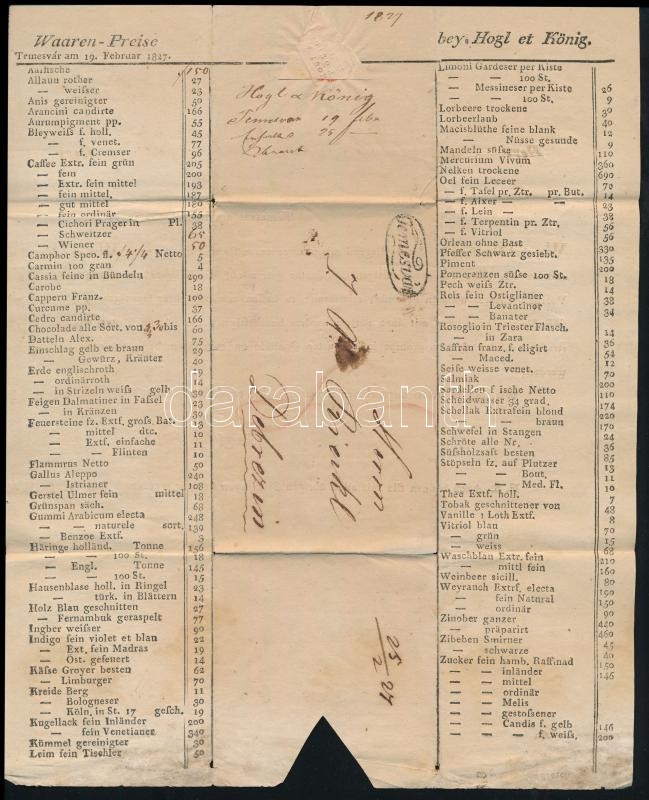 1827
Waaren-Preise
bey Hogl et König.
Temesvár am 19. Februar 1827.
Aalfische 150
Allaun rother 27
— weisser 23
Anis gereinigter 50
Arancini candirte 166
Aurumpigment pp. 55
Bleyweiß f. holl. 45
— f. venet. 77
— f. Cremser 96
Caffee Extr. fein grün 205
— fein 200
— Extr. fein mittel 193
— fein mittel. 187
— gut mittel 180
— fein ordinär 155
— Cichori Prager in Pl. 38
— Schweitzer 65
— Wiener 50
Camphor Spco. fl. Netto 5
Carmin 100 gran 4
Cassia fein in Bündeln 290
Carobe 18
Cappern Franz. 100
Curcume pp. 37
Cedro candirte 166
Chocolade alle Sort. von bis 60
Datteln Alex. 75
Einschlag gelb et braun 29
— Gewürz, Kräuter 40
Erde englischroth
— ordinärroth
— in Strizeln weiss gelb
Feigen Dalmatiner in Fassel
— in Kränzen
Feuersteine fz. Extf. gross. Bar.
— mittel dtc.
— Extf. einfache 11
— Flinten 10
Flammrus Netto 50
Gallus Aleppo 240
— Istrianer 108
Gerstel Ulmer fein mittel 18
Grünspan säch. 68
Gummi Arabicum electa 248
— naturele sort. 139
— Benzoe Extf. 3
Häringe holländ. Tonne 156
— 100 St. 18
— Engl. Tonne 145
— 100 St. 15
Hausenblase holl. in Ringel 23
— türk. in Blättern 14
Holz Blau geschnitten 27
— Fernambuk geraspelt 77
Ingber weisser 90
Indigo fein violet et blau 22
— Ext. fein Madras 19
— Ost. gefeuert 14
Käße Groyer besten 62
— Limburger 70
Kreide Berg 11
— Bologneser 30
— Köln. in St. 17 gesch. 19
Kugellack fein Inländer 200
— fein Venetianer 340
Kümmel gereinigter 30
Leim fein Tischler 50
Hogl & König
Temesvar 19 febr
25
TEMESVAR
Herrn
Bienkl
Debrezin
25
2
24
Limoni Gardeser per Kiste
— — 100 St.
— Messineser per Kiste 26
— — 100 St. 9
Lorbeere trockene 30
Lorbeerlaub 40
Macisblüthe feine blank 12
— Nüsse gesunde 9
Mandeln süße 110
Mercurium Vivum 360
Nelken trockene 690
Oel fein Lecceer 70
— f. Tafel pr. Ztr. pr. But. 14
— f. Aixer — —
— f. Lein —
— f. Terpentin pr. Ztr. 56
— f. Vitriol 56
Orlean ohne Bast 330
Pfeffer Schwarz gesiebt. 135
Piment
Pomeranzen süße 100 St.
Pech weiß Ztr.
Reis fein Ostiglianer
— — Levantiner
— — Banater 34
Rosoglio in Triester Flasch.
— in Zara
Saffran franz. f. eligirt
— Maced.
Seife weisse venet.
Salmiak
Sardellen f ische Netto
Scheidwasser 34 grad.
Schellak Extrafein blond
— — braun
Schwefel in Stangen 24
Schröte alle Nr. 36
Süßholzsaft besten 85
Stöpseln fz. auf Plutzer 13
— — Bout. 11
— — Med. Fl. 10
Thee Extf. holl. 7
Tobak geschnittener von 48
Vanille 1 Loth Extf. 8
Vitriol blau
— grün
— weiss 68
Waschblau Extr. fein 210
— mittl fein 160
Weinbeer sicill. 80
Weyrauch Extrf. electa 190
— fein Natural 150
— ordinär 90
Zinober ganzer 440
— präparirt 460
Zibeben Smirner 45
— schwarze 40
Zucker fein hamb. Raffinad 150
— — inländer 146
— — mittel
— — ordinär
— — Melis
— — gestossener
— — Candis f. gelb 146
— — — f. weiß. 200
darabanth